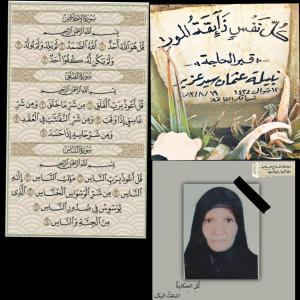 سورة الإخلاص
بسم الله الرحمن الرحيم
قل هو الله أحد ۝ الله الصمد ۝ لم يلد ولم يولد
ولم يكن له كفوا أحد
سورة الفلق
بسم الله الرحمن الرحيم
قل أعوذ برب الفلق ۝ من شر ما خلق ۝ ومن شر
غاسق إذا وقب ۝ ومن شر النفاثات في العقد
ومن شر حاسد إذا حسد
سورة الناس
بسم الله الرحمن الرحيم
قل أعوذ برب الناس ۝ ملك الناس ۝ إله
الناس ۝ من شر الوسواس الخناس ۝ الذي
يوسوس في صدور الناس
من الجنة والناس
كل نفس ذائقة الموت
قبر الحاجة
نبيلة عثمان سيد